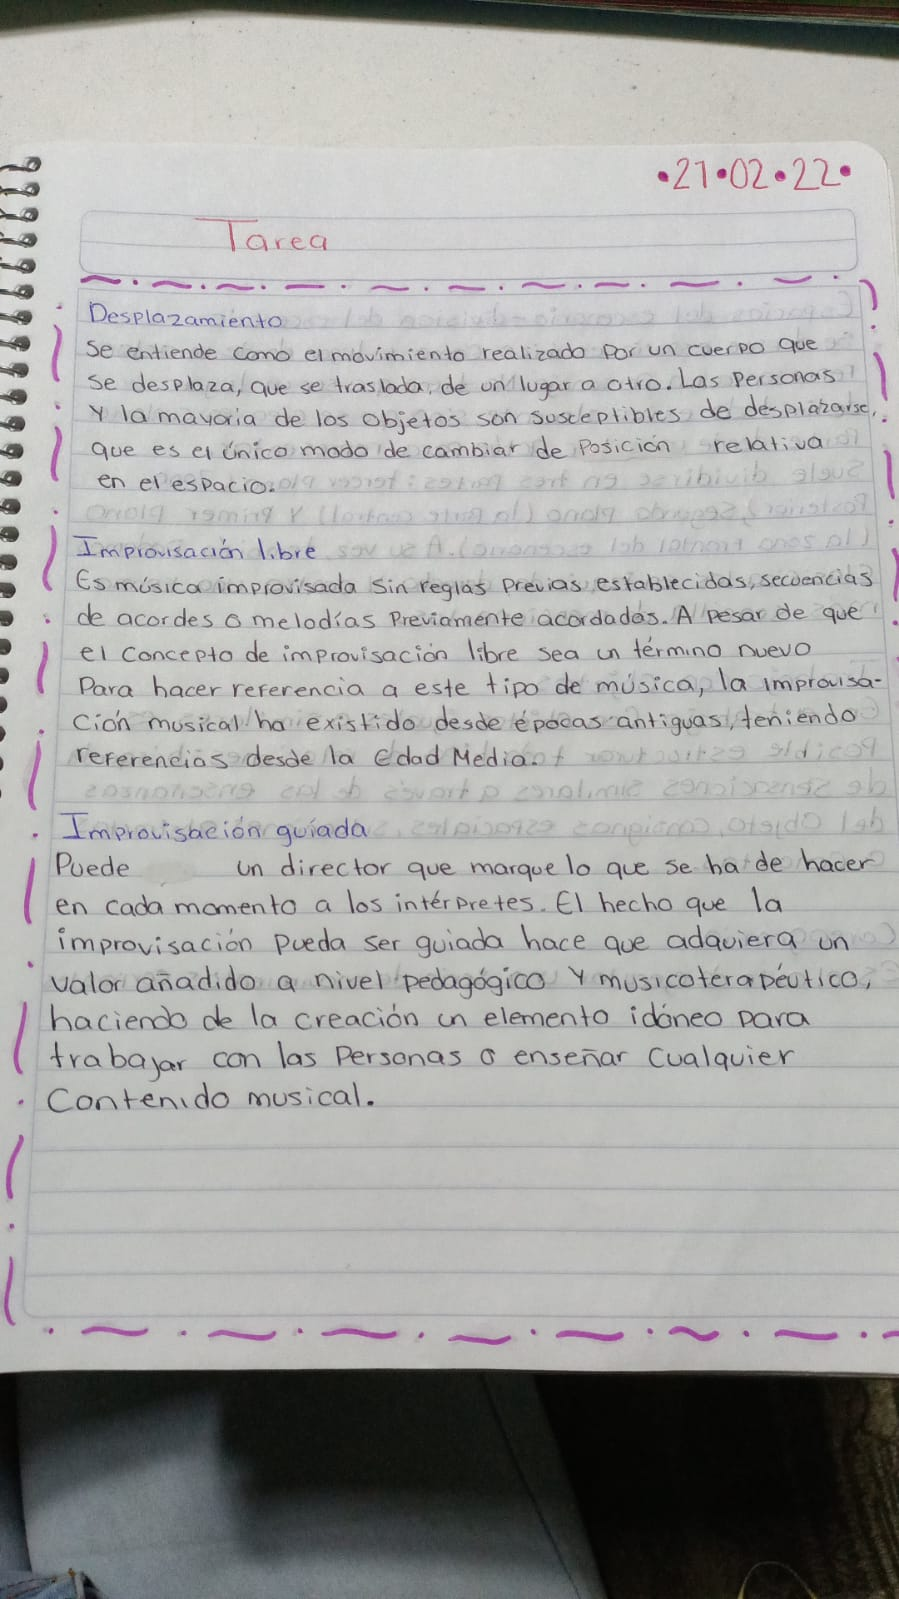 •21•02•22•
Tarea
Desplazamiento
Se entiende como el movimiento realizado por un cuerpo que
se desplaza, que se traslada, de un lugar a otro. Las personas
y la mayoria de los objetos son susceptibles de desplazarse,
que es el único modo de cambiar de posición relativa
en el espacio.
Improvisación libre
Es música improvisada sin reglas previas establecidas, secuencias
de acordes o melodías previamente acordadas. A pesar de que
el concepto de improvisación libre sea un término nuevo
para hacer referencia a este tipo de música, la improvisa-
ción musical ha existido desde épocas antiguas, teniendo
referencias desde la Edad Media.
Improvisación guiada
Puede un director que marque lo que se ha de hacer
en cada momento a los intérpretes. El hecho que la
improvisación pueda ser guiada hace que adquiera un
valor añadido a nivel pedagógico y musicoterapéutico,
haciendo de la creación un elemento idóneo para
trabajar con las personas o enseñar cualquier
contenido musical.